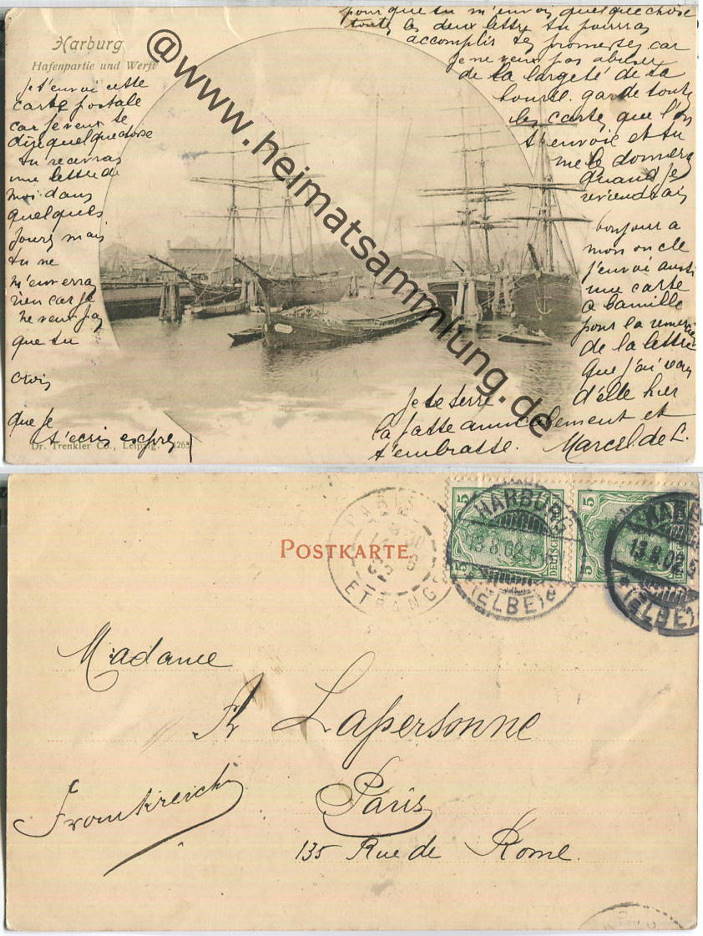 Harburg
Hafenpartie und Werft
Je t'envoi cette
carte postale
car je veut te
dire quelque chose
tu recevras
une lettre de
moi dans
quelques
jours mais
tu ne
m'enverras
rien car je
ne veux pas
que tu
crois
que je
t'ecris exprès
pour que tu m'envois quelque chose
toute les deux lettre tu pourras
accomplir tes promesses car
je ne veux pas abuser
de la largeté de ta
bourse. garde toute
les carte que l'on
t'envoie et tu
me le donnera
quand je
reviendrais
bonjour a
mon oncle
j'envoi aussi
une carte
a Camille
pour la remercier
de la lettre
que j'ai reçu
d'elle hier
je te serre
la patte amicalement et
t'embrasse. Marcel. de L.
Dr. Trenkler Co., Leipzig.
@www.heimatsammlung.de
POSTKARTE
PARIS
ETRANGER
5
5
HARBURG
13.8.02
*(ELBE)
HARBURG
13.8.02
*(ELBE)
Madame
Lapersonne
Paris
135 Rue de Rome.
Frankreich